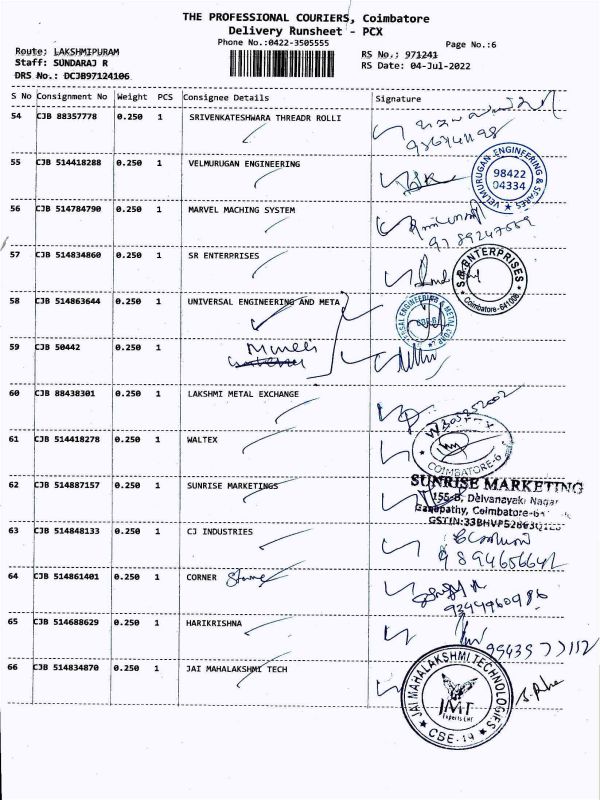 THE PROFESSIONAL COURIERS, Coimbatore
Delivery Runsheet - PCX
Phone No.:0422-3505555
Page No.:6
Route: LAKSHMIPURAM
RS No.: 971241
Staff: SUNDARAJ R
RS Date: 04-Jul-2022
DRS No.: DCJB97124106
S No Consignment No Weight PCS Consignee Details Signature
54 CJB 88357778 0.250 1 SRIVENKATESHWARA THREADR ROLLI
55 CJB 514418288 0.250 1 VELMURUGAN ENGINEERING
VELMURUGAN ENGINEERING & SPARES
98422
04334
56 CJB 514784790 0.250 1 MARVEL MACHING SYSTEM
9789247559
57 CJB 514834860 0.250 1 SR ENTERRRISES
S.R. ENTERPRISES
Coimbatore-641006.
58 CJB 514863644 0.250 1 UNIVERSAL ENGINEERING AND META
59 CJB 50442 0.250 1
60 CJB 88438301 0.250 1 LAKSHMI METAL EXCHANGE
61 CJB 514418278 0.250 1 WALTEX
COIMBATORE-6
62 CJB 514887157 0.250 1 SUNRISE MARKETINGS
SUNRISE MARKETING
155-B, Delvanayaki Nagar
Ganapathy, Coimbatore-64
63 CJB 514848133 0.250 1 CJ INDUSTRIES
9894656642
64 CJB 514861401 0.250 1 CORNER Stone
9344960986
65 CJB 514688629 0.250 1 HARIKRISHNA
9943577112
66 CJB 514834870 0.250 1 JAI MAHALAKSHMI TECH
JAI MAHALAKSHMI TECHNOLOGIES
JMT
CBE-19